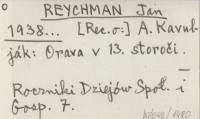 o REYCHMAN Jan
1938... [Rec.o:] A. Kavul-
ják: Orava v 13. storočí.
Roczniki Dziejów Społ. i
Gosp. 7.